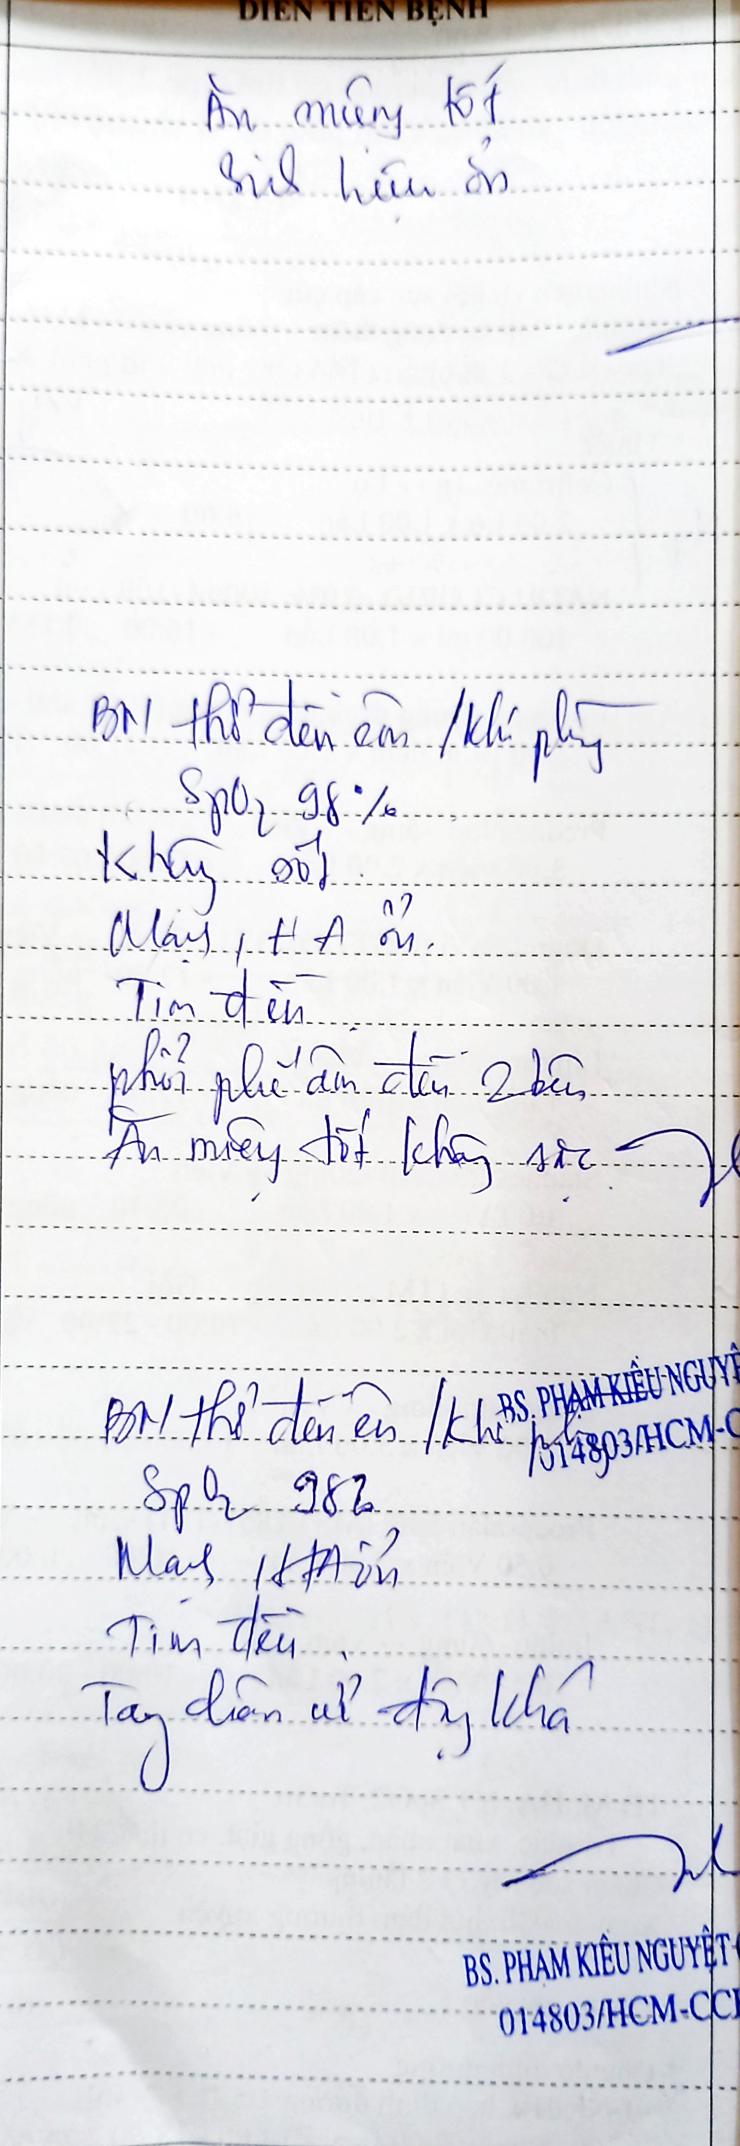 DIỄN TIẾN BỆNH
Ăn miệng tốt
Sinh hiệu ổn
BN thở đều êm /khí phòng
SpO₂ 98%
Không sốt
Mạch, HA ổn.
Tim đều
phổi phế âm đều 2 bên
Ăn miệng tốt không sặc
BS. PHẠM KIỀU NGUYỆT
014803/HCM-C
BN thở đều êm /khí phòng
SpO₂ 98%
Mạch, HA ổn
Tim đều
Tay chân cử động khá
BS. PHẠM KIỀU NGUYỆT
014803/HCM-CC